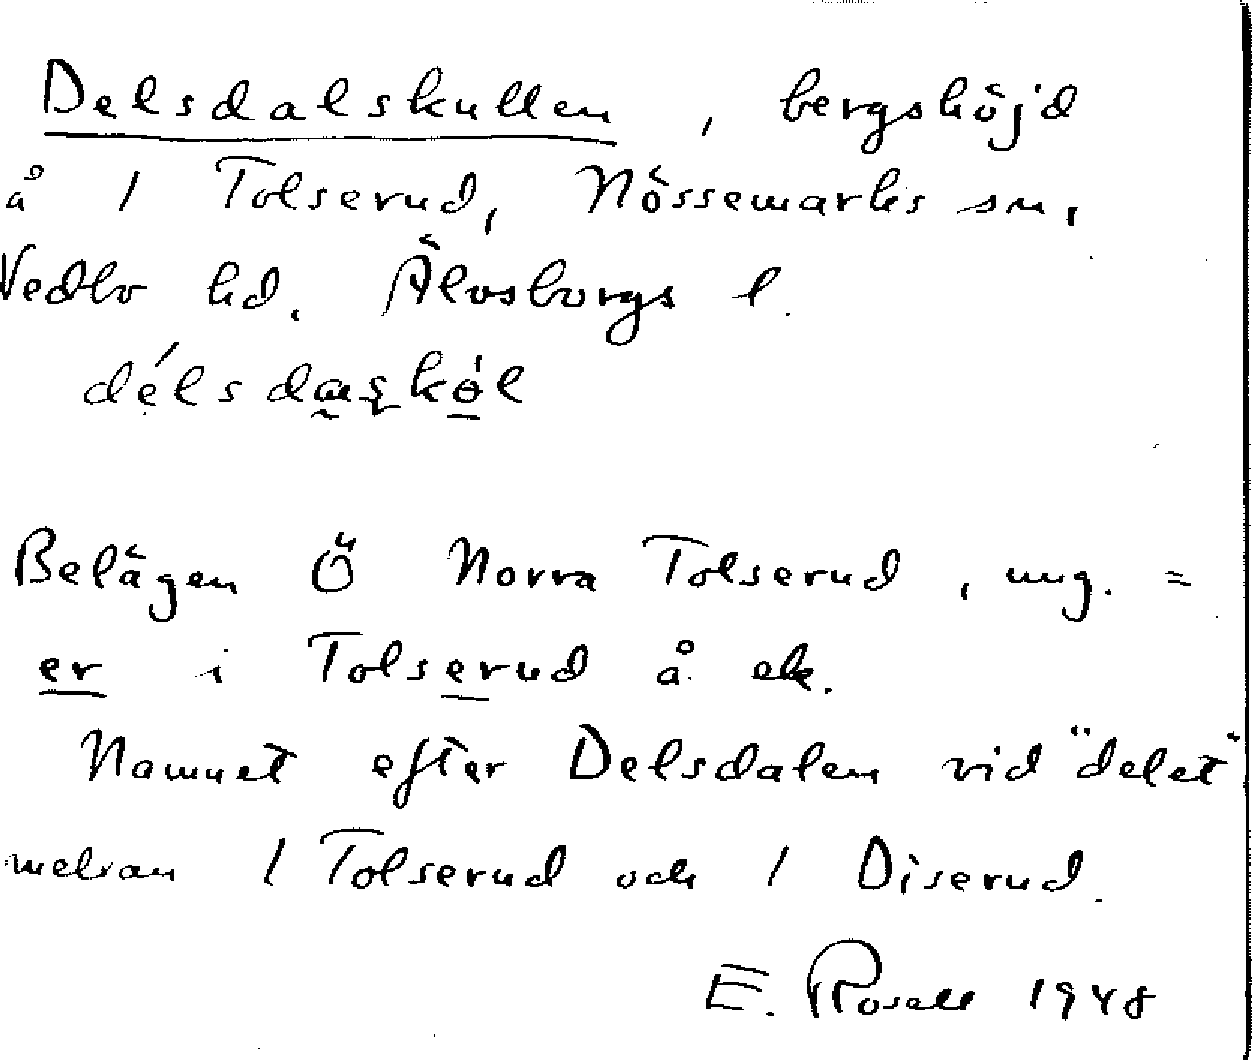 Delsdalskullen, bergshöjd
å 1 Tolserud, Nössemarks sn,
Vedbo hd. Älvsborgs l.
Belägen Ö Norra Tolserud, ung. =
er i Tolserud å ek.
Namnet efter Delsdalen vid "delet"
mellan 1 Tolserud och 1 Diserud.
E. Rosell 1948